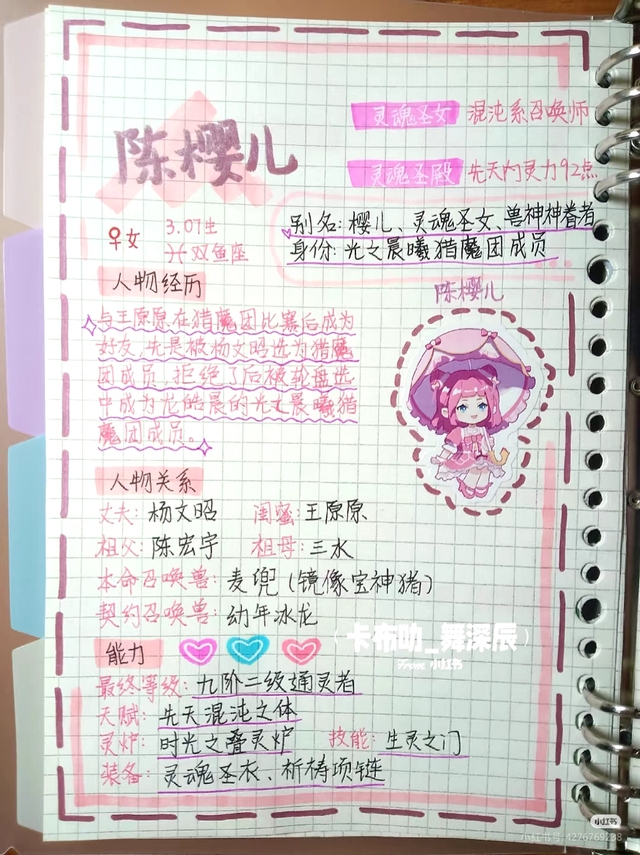 陈樱儿
灵魂圣女 混沌系召唤师
灵魂圣殿 先天内灵力92点
♀女 3.07生
♓双鱼座
别名:樱儿、灵魂圣女、兽神神眷者
身份:光之晨曦猎魔团成员
人物经历
与王原原在猎魔团比赛后成为
好友,先是被杨文昭选为猎魔
团成员,拒绝了后被轮盘选
中成为龙皓晨的光之晨曦猎
魔团成员。
陈樱儿
人物关系
丈夫:杨文昭 闺蜜:王原原
祖父:陈宏宇 祖母:三水
本命召唤兽:麦兜(镜像宝神猪)
契约召唤兽:幼年冰龙
(卡布叻_舞深辰)
From 小红书
能力
最终等级:九阶二级通灵者
天赋:先天混沌之体
灵炉:时光之叠灵炉 技能:生灵之门
装备:灵魂圣衣、祈祷项链
小红书